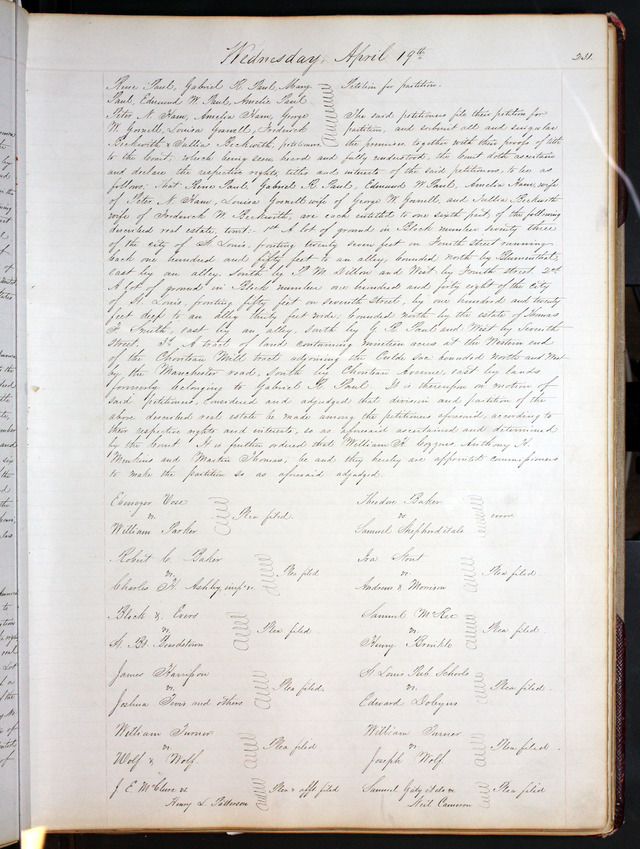 Wednesday, April 19th
231.
Rene Paul, Gabriel R. Paul, Mary
Paul, Edmund W Paul, Amelie Paul
Peter N Ham, Amelia Ham, George
W Gorrell, Louisa Gorrell, Frederick
Beckwith & Sallie Beckwith, petitioners
Petition for partition.
The said petitioners file their petition for
partition, and submit all and singular
the premises together with their proofs of title
to the Court, which being seen heard and fully understood, the Court doth ascertain
and declare the respective rights, titles and interests of the said petitioners, to be as
follows, that Rene Paul, Gabriel R Paul, Edmund W Paul, Amelia Ham, wife
of Peter N Ham, Louisa Gorrell wife of George W Gorrell, and Sallie Beckwith
wife of Frederick W Beckwith, are each entitled to one sixth part, of the following
described real estate, towit: 1st A lot of ground in Block number seventy three
of the city of St Louis, fronting twenty seven feet on Fourth Street running
back one hundred and fifty feet to an alley, bounded North by Blumenthal,
east by an alley, South by P. M. Dillon and West by Fourth Street. 2nd
A lot of ground in Block number one hundred and forty eight of the city
of St. Louis, fronting fifty feet on seventh Street, by one hundred and twenty
feet deep to an alley thirty feet wide, bounded North by the estate of Thomas
F. Smith, east by an alley, South by G R Paul and West by Seventh
Street. 3d A tract of land containing nineteen acres at the Western end
of the Chouteau Mill tract adjoining the Culde Sac bounded North and West
by the Manchester road, South by Chouteau Avenue, east by lands
formerly belonging to Gabriel R. Paul. It is thereupon on motion of
said petitioners, considered and adjudged that division and partition of the
above described real estate be made among the petitioners aforesaid, according to
their respective rights and interests, so as aforesaid ascertained and determined
by the Court. It is further ordered that William T. Cozzens, Anthony H.
Menkens and Martin Thomas, be and they hereby are appointed commissioners
to make the partition so as aforesaid adjudged.
Ebenezer Vose
vs.
William Parker
Plea filed.
Theodore Baker
vs
Samuel Shepherd et als
Robert C. Baker
vs.
Charles H. Ashby
Plea filed
Ira Stout
vs
Andrews & Morrison
Plea filed
Block & Evers
vs
Plea filed
Samuel McKee
vs.
Henry Brinkle
Plea filed.
James Harrison
vs.
Joshua Tevis and others
Plea filed.
St Louis Pub. Schools
vs.
Edward
Plea filed.
William Turner
vs
Wolf & Wolf.
Plea filed
William Turner
vs.
Joseph Wolf
Plea filed.
J E McClure
vs
Henry L. Patterson
Plea & affts filed
Samuel Gaty et als
vs
Neil Cameron
Plea filed